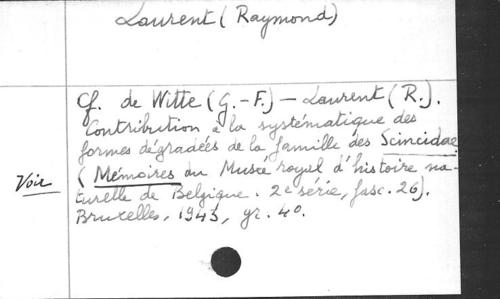 Laurent (Raymond)
Cf. de Witte (G.-F.) — Laurent (R.).
Contribution à la systématique des
formes dégradées de la famille des Scincidae
Voir (Mémoires du Musée royal d'histoire na-
turelle de Belgique. 2e série, fasc. 26).
Bruxelles, 1943, gr. 4o.